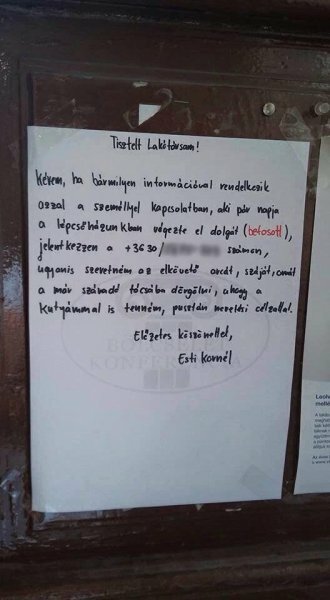 Tisztelt Lakótársam!
Kérem, ha bármilyen információval rendelkezik
azzal a személlyel kapcsolatban, aki pár napja
a lépcsőházunkban végezte el dolgát (befosott),
jelentkezzen a +3630/ számon,
ugyanis szeretném az elkövető arcát, száját, orrát
a már száradó tócsába dörgölni, ahogy a
kutyámmal is tenném, pusztán nevelési célzattal.
Előzetes köszönettel,
Esti Kornél